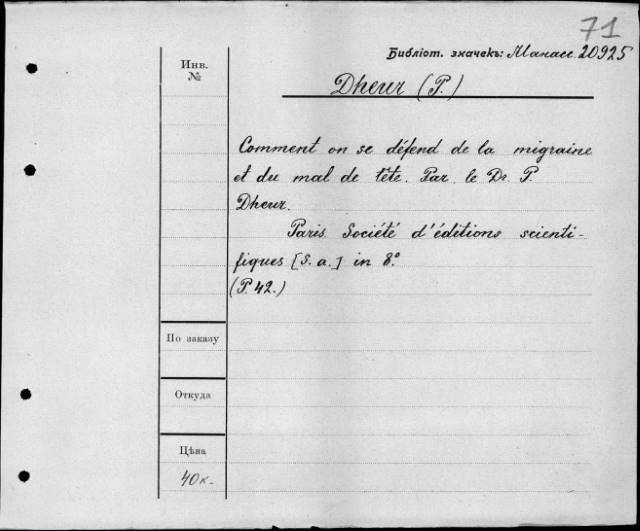 71
Библіот. значекъ: Манасс. 20925
Инв.
№
Dheur (P.)
Comment on se défend de la migraine
et du mal de tête. Par le Dr P.
Dheur.
Paris. Société d'éditions scienti-
fiques [S. a.] in 8.º
(P. 42.)
По заказу
Откуда
Цѣна
40 к.